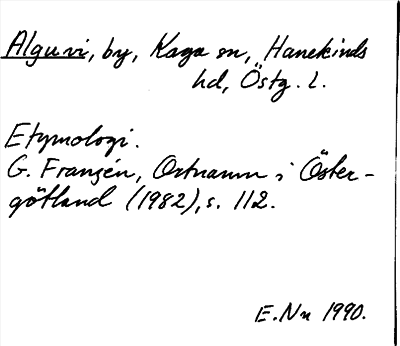 Alguvi, by, Kaga sn, Hanekinds
hd, Östg. l.
Etymologi.
G. Franzén, Ortnamn i Öster-
götland (1982), s. 112.
E.Nn 1990.